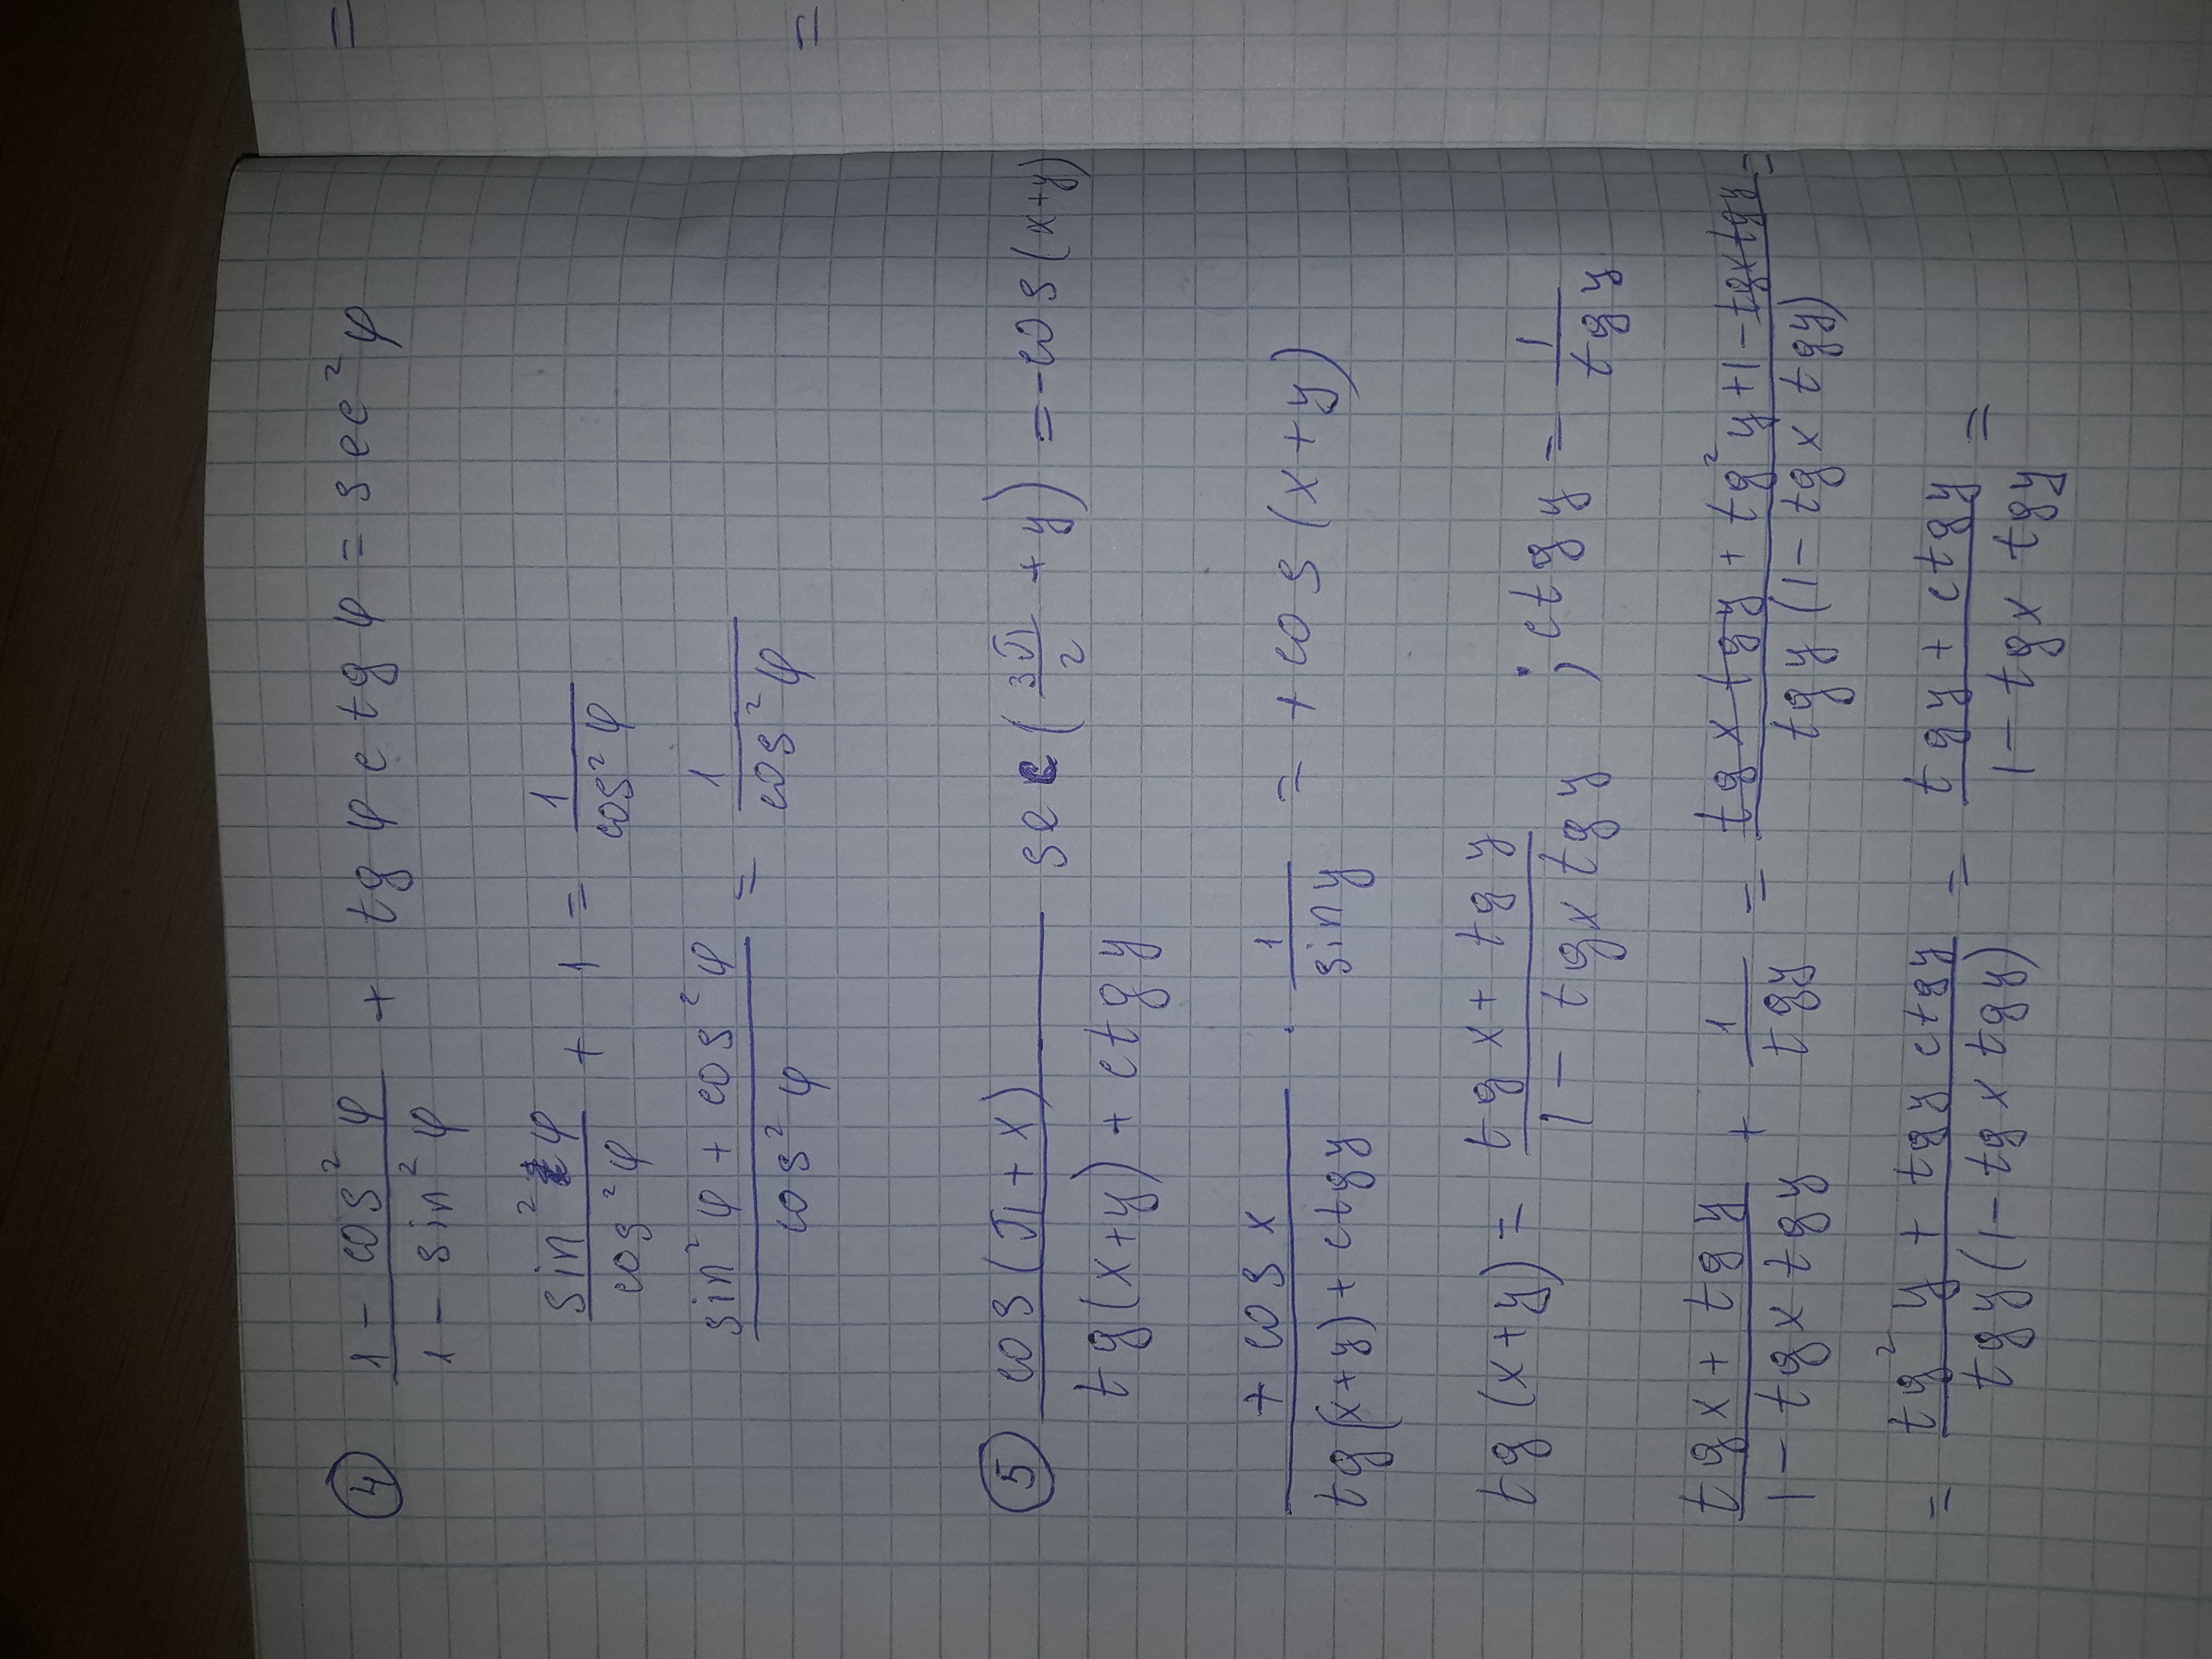 ④ (1 - cos²φ)/(1 - sin²φ) + tg φ ctg φ = sec²φ
sin²φ/cos²φ + 1 = 1/cos²φ
(sin²φ + cos²φ)/cos²φ = 1/cos²φ
⑤ cos(π + x)/(tg(x+y) + ctg y) sec(3π/2 + y) = -cos(x+y)
(+cos x)/(tg(x+y) + ctg y) · 1/sin y = + cos(x+y)
tg(x+y) = (tg x + tg y)/(1 - tg x tg y) ; ctg y = 1/tg y
(tg x + tg y)/(1 - tg x tg y) + 1/tg y = (tg x tg y + tg²y + 1 - tg x tg y)/(tg y (1 - tg x tg y)) =
= (tg²y + tg y ctg y)/(tg y (1 - tg x tg y)) = (tg y + ctg y)/(1 - tg x tg y) =
=
=